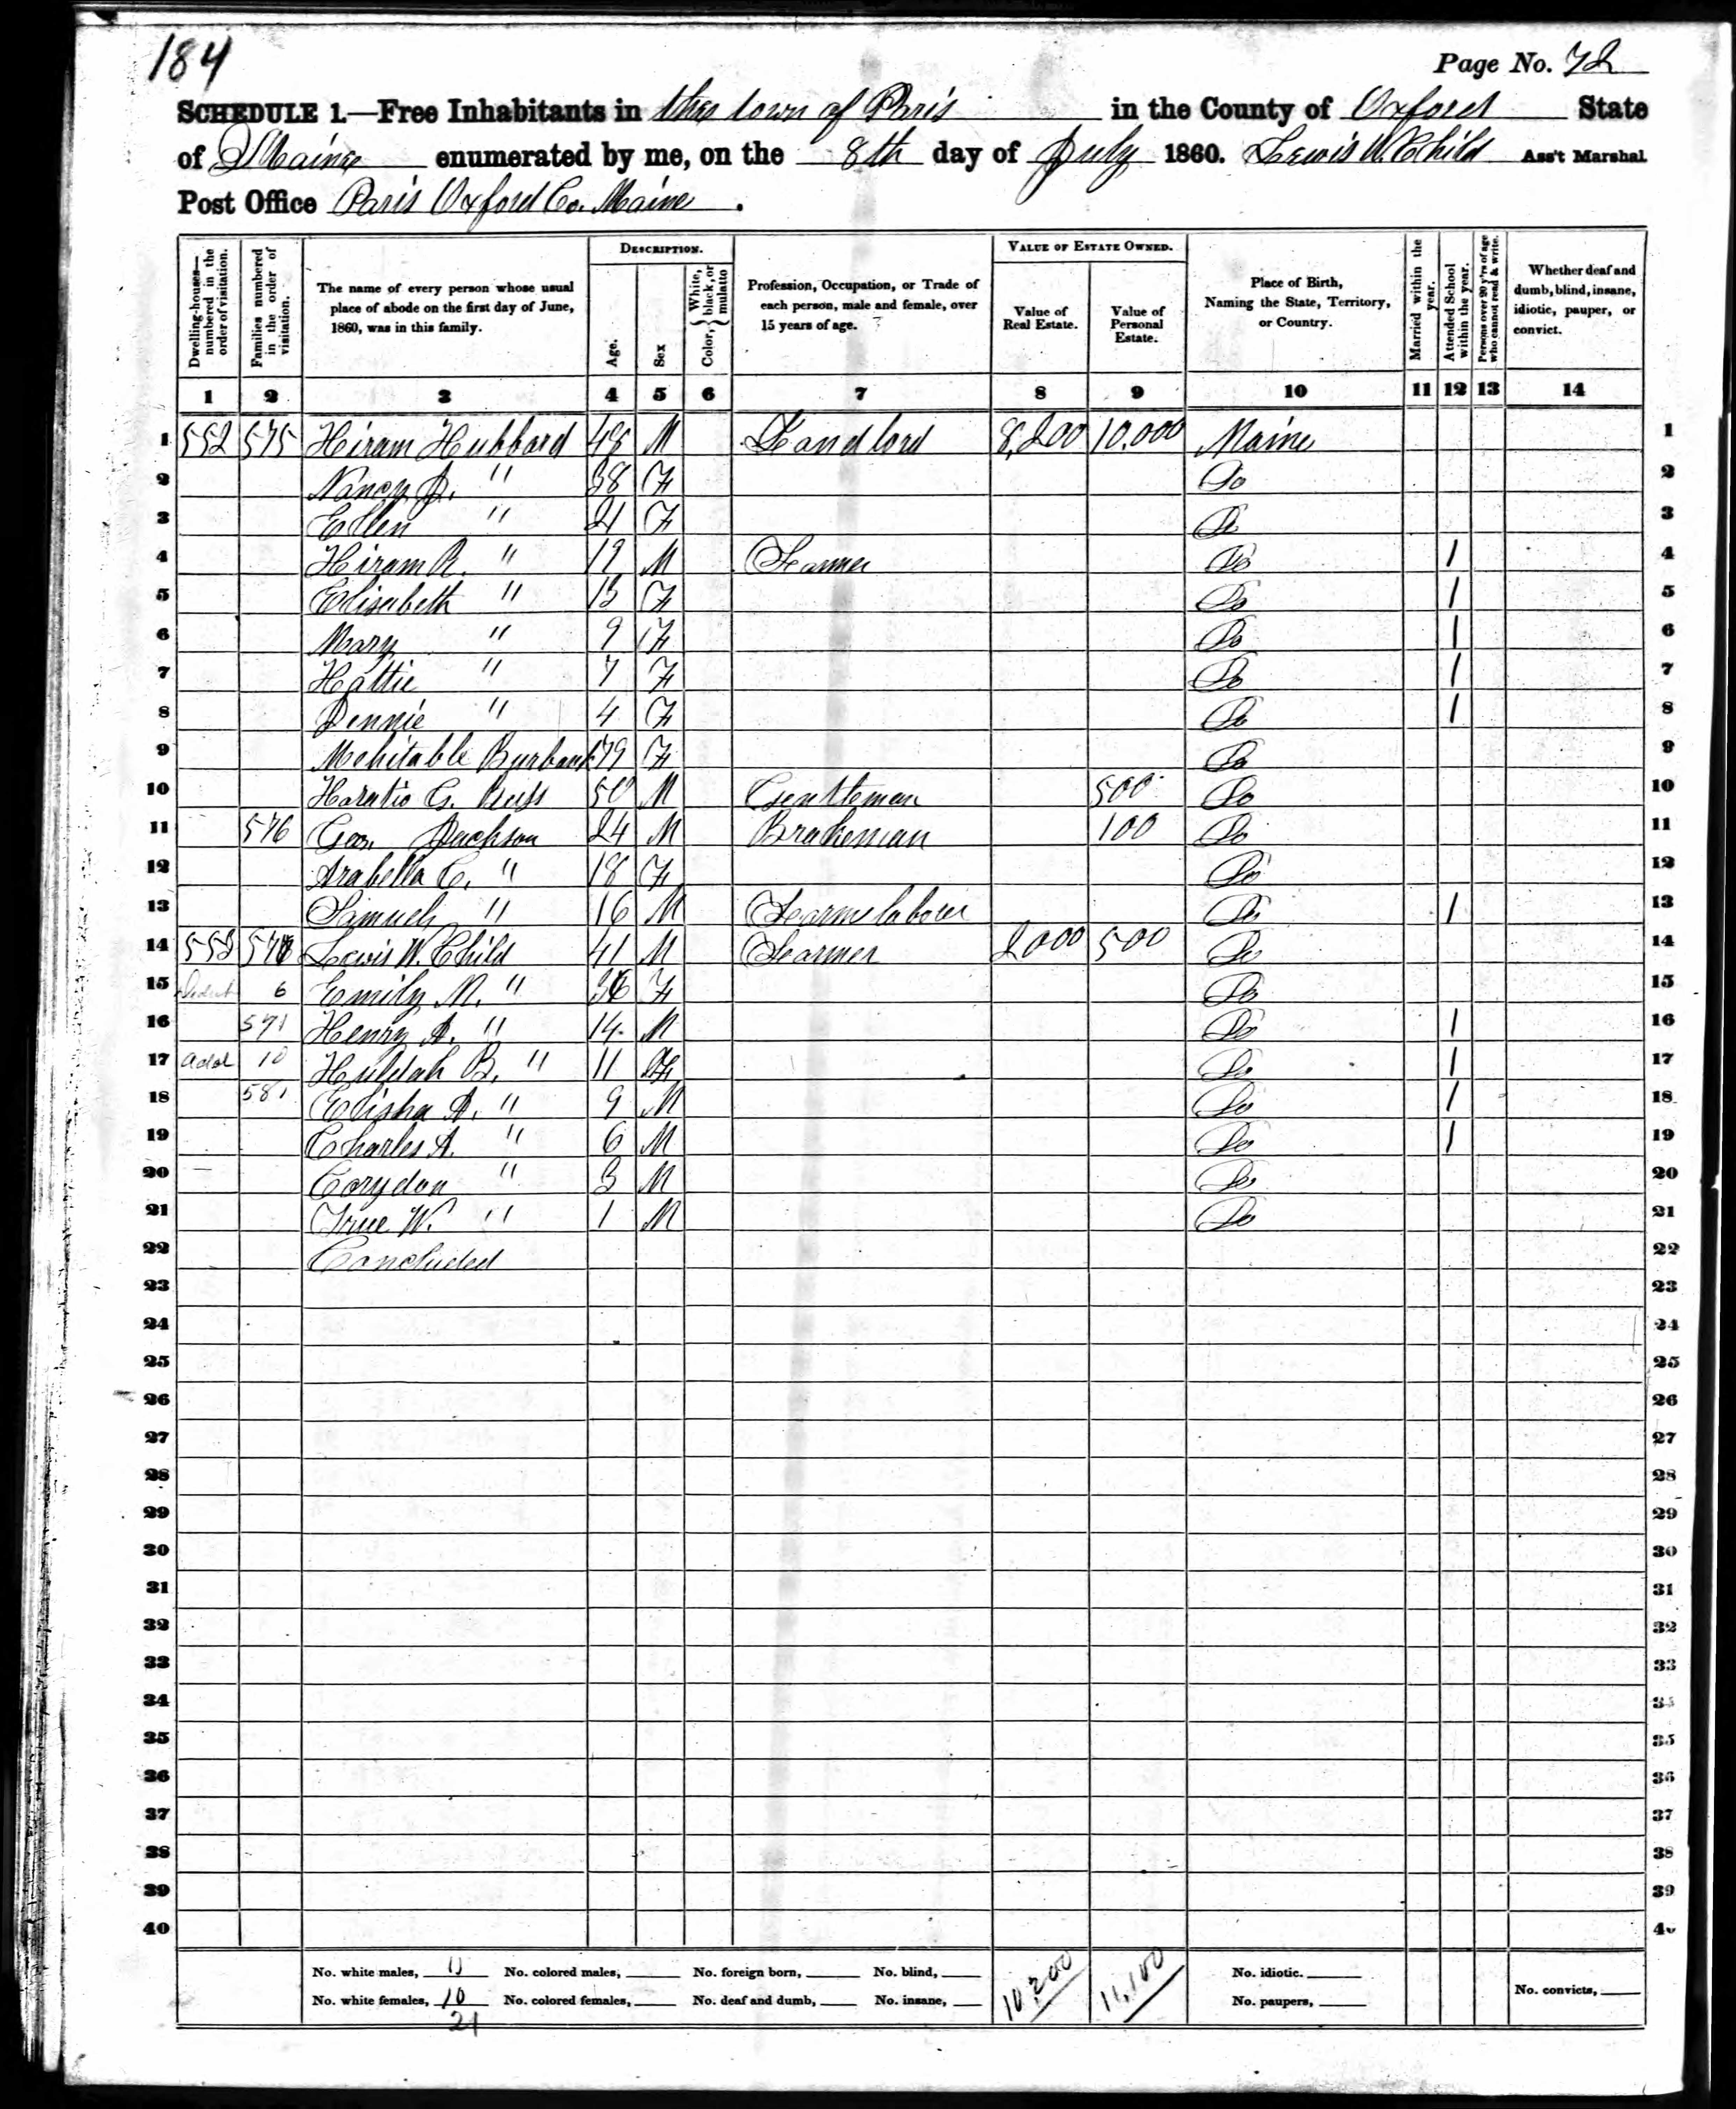 184
Page No. 72
SCHEDULE 1.—Free Inhabitants in the town of Paris in the County of Oxford State
of Maine enumerated by me, on the 8th day of July 1860. Lewis W. Child Ass't Marshal
Post Office Paris Oxford Co. Maine.
Dwelling-houses—numbered in the order of visitation.
Families numbered in the order of visitation.
The name of every person whose usual place of abode on the first day of June, 1860, was in this family.
DESCRIPTION.
Age.
Sex
Color, { White, black, or mulatto
Profession, Occupation, or Trade of each person, male and female, over 15 years of age.
VALUE OF ESTATE OWNED.
Value of Real Estate.
Value of Personal Estate.
Place of Birth, Naming the State, Territory, or Country.
Married within the year.
Attended School within the year.
Persons over 20 y'rs of age who cannot read & write.
Whether deaf and dumb, blind, insane, idiotic, pauper, or convict.
1 2 3 4 5 6 7 8 9 10 11 12 13 14
1 552 575 Hiram Hubbard 48 M Landlord 8,200 10.000 Maine 1
2 Nancy J. " 38 F Do 2
3 Ellen " 21 F Do 3
4 Hiram R. " 19 M Farmer Do 1 4
5 Elisabeth " 13 F Do 1 5
6 Mary " 9 F Do 1 6
7 Hattie " 7 F Do 1 7
8 Jennie " 4 F Do 1 8
9 Mehitable Burbank 79 F Do 9
10 Horatio G. Russ 50 M Gentleman 500 Do 10
11 576 Geo. Jackson 24 M Brakeman 100 Do 11
12 Arabella C. " 18 F Do 12
13 Samuel " 16 M Farm laborer Do 1 13
14 553 577 Lewis W. Child 41 M Farmer 2000 500 Do 14
15 deduct 6 Emily M. " 36 F Do 15
16 571 Henry A. " 14 M Do 1 16
17 add 10 Huldah B. " 11 F Do 1 17
18 581 Elisha A. " 9 M Do 1 18
19 Charles A. " 6 M Do 1 19
20 Corydon " 3 M Do 20
21 True W. " 1 M Do 21
22 Concluded 22
23 23
24 24
25 25
26 26
27 27
28 28
29 29
30 30
31 31
32 32
33 33
34 34
35 35
36 36
37 37
38 38
39 39
40 40
No. white males, 11 No. colored males, No. foreign born, No. blind, 10,200 11,100 No. idiotic.
No. white females, 10 No. colored females, No. deaf and dumb, No. insane, No. paupers, No. convicts,
21